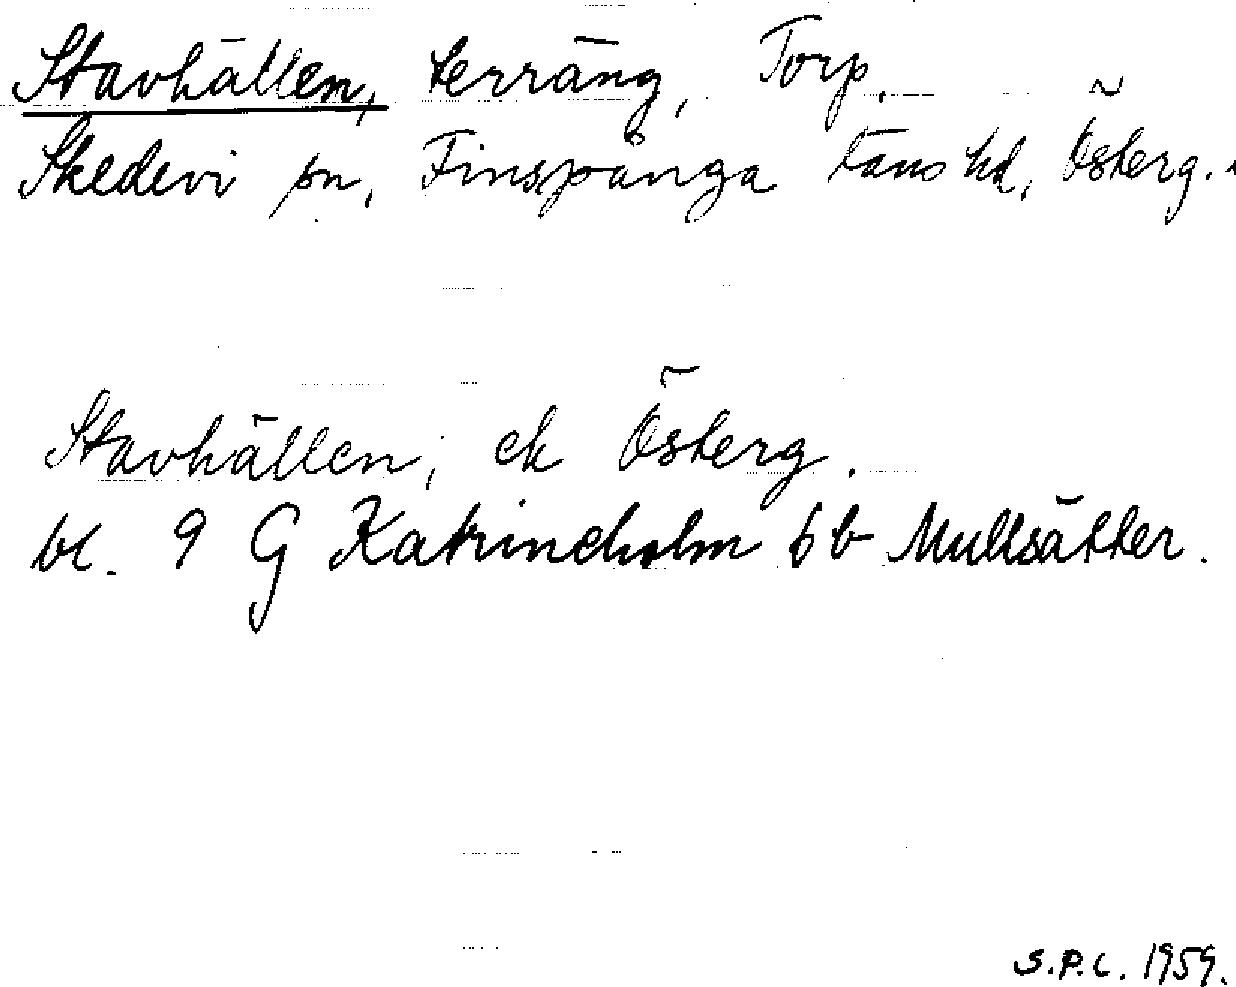 Stavhällen, terräng, Torp.
Skedevi sn, Finspånga läns hd, Österg.
Stavhällen, ek Österg.
bl. 9 G Katrineholm 6 b Mullsätter.
S.P.C. 1959.